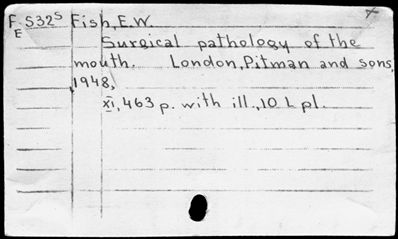 F. S32ˢ Fish, E.W.
E
Surgical pathology of the
mouth. London, Pitman and sons,
1948,
XI, 463 p. with ill., 10 L pl.